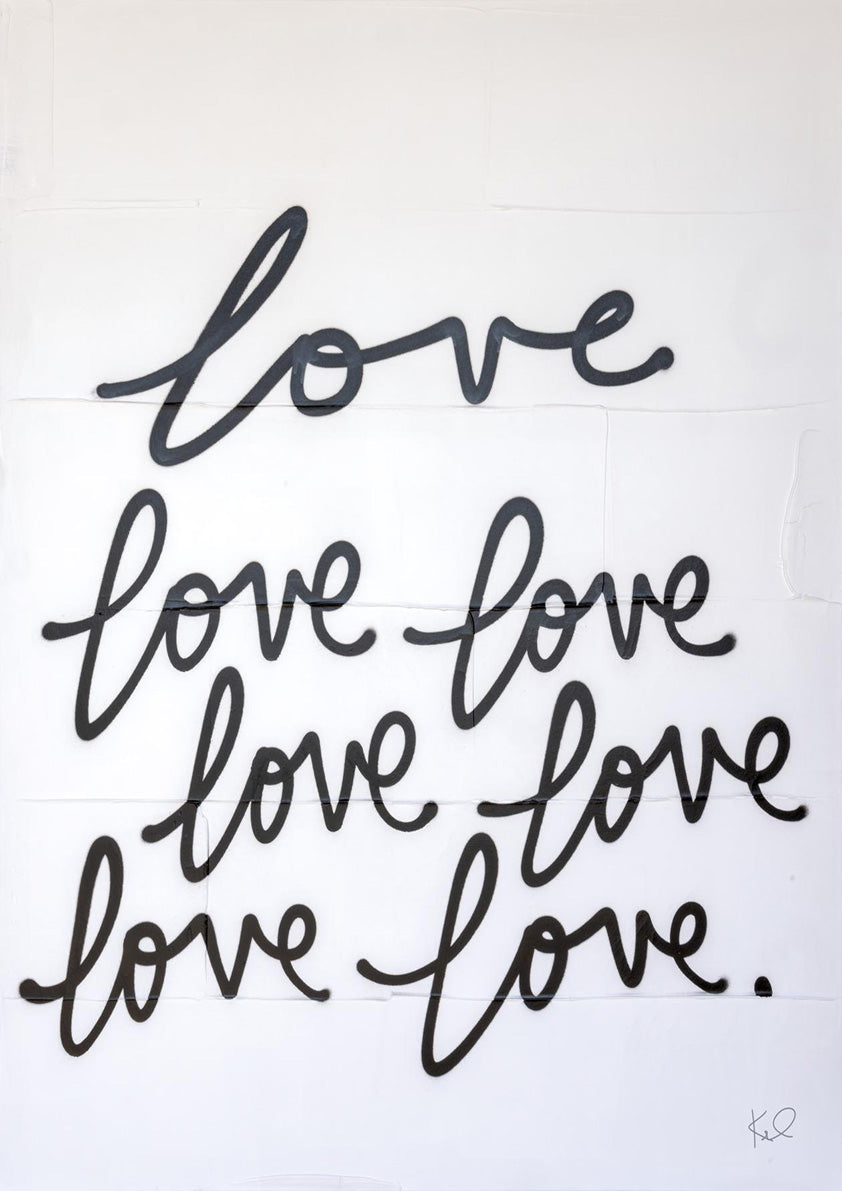 love
love love
love love
love love.